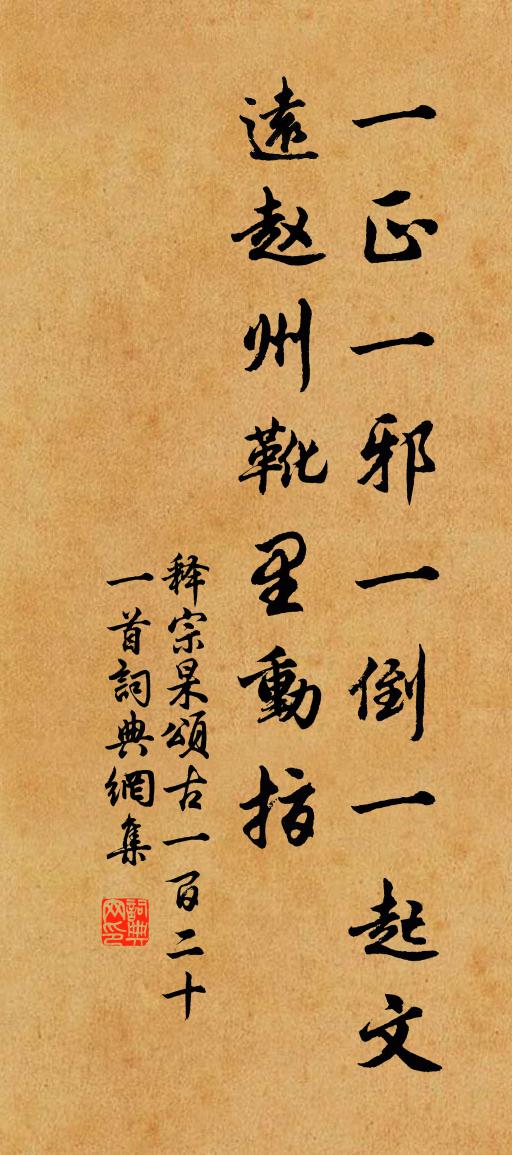 一正一邪一倒一起文
遠赵州靴里動指
释宗杲頌古一百二十
一首詞典網集
詞典網印